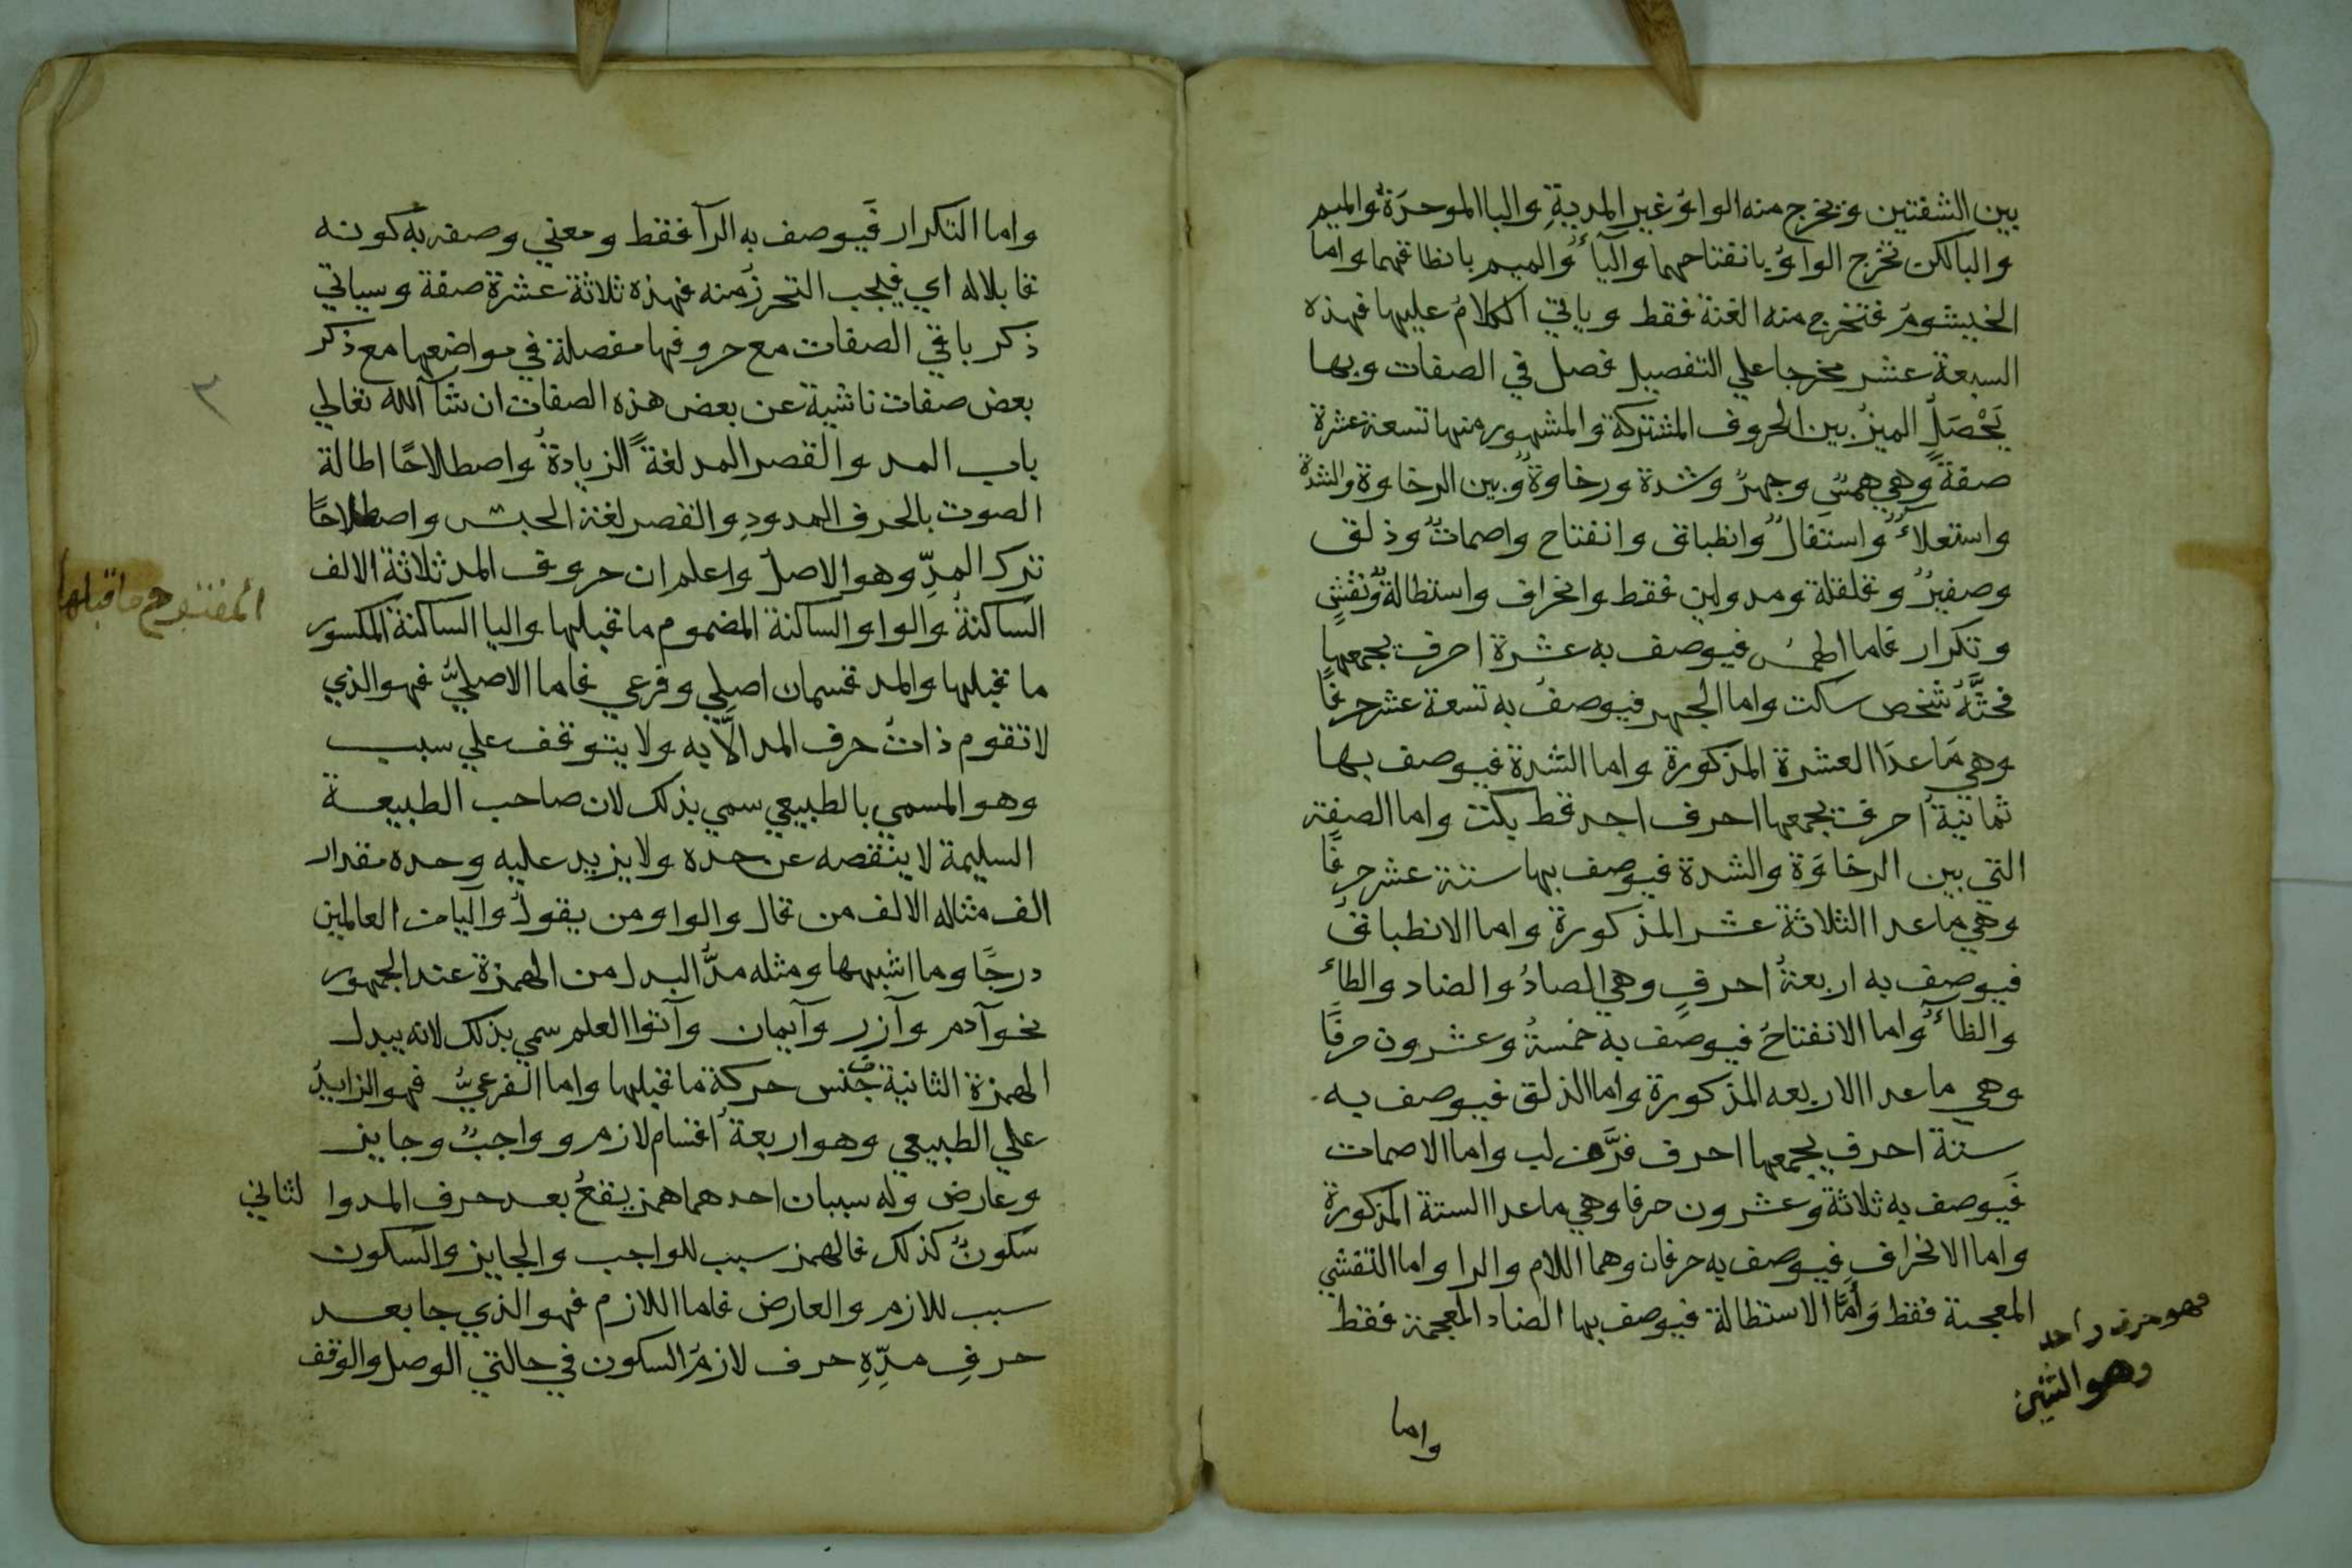 بين الشفتين ويخرج منه الواو غير المدية والبا الموحدة والميم
والبا لكن تخرج الواو بانفتاحهما واليآء والميم بانطباقهما واما
الخيشوم فتخرج منه الغنة فقط وياتي الكلام عليها فهذه
السبعة عشر مخرجا علي التفصيل فصل في الصفات وبها
يَحْصَل الميز بين الحروف المشتركة والمشهور منها تسعة عشرة
صفة وهي همس وجهر وشدة ورخاوة وبين الرخاوة والشدة
واستعلاء واستفال وانطباق وانفتاح واصمات وذلق
وصفير وقلقلة ومد ولين فقط وانحراف واستطالة وتفش
وتكرار فاما الهمس فيوصف به عشرة احرف يجمعها
فحثَّهُ شخص سكت واما الجهر فيوصف به تسعة عشر حرفًا
وهي مَا عدَا العشرة المذكورة واما الشدة فيوصف بها
ثمانية احرف يجمعها احرف اجد قط بكت واما الصفة
التي بين الرخاوَة والشدة فيوصف بها ستة عشر حرفًا
وهي ما عدا الثلاثة عشر المذكورة واما الانطباق
فيوصف به اربعة احرفٍ وهي الصادُ والضاد والطاء
والظآء واما الانفتاحُ فيوصف به خمسة وعشرون حرفًا
وهي ما عدا الاربعه المذكورة واما الذلق فيوصف به
ستة احرف يجمعها احرف فرَّمن لب واما الاصمات
فَيوصف به ثلاثة وعشرون حرفا وهي ما عدا الستة المذكورة
واما الانحراف فيوصف به حرفان وهما اللام والرا واما التفشي
فهو حرف واحد
وهو الشين
المعجمة فقط وَأمَّا الاستطالة فيوصف بها الضاد المعجمة فقط
واما
واما التكرار فَيوصف به الرآ فقط ومعني وصفه به كونه
قابلا له اي فيجب التحرزُ منه فهذه ثلاثة عشرة صفة وسياتي
ذكر باقي الصفات مع حروفها مفصلة في مواضعها مع ذكر
٣
بعض صفات ناشية عن بعض هذه الصفات ان شآ الله تعالي
باب المد والقصر المد لغةً الزيادة واصطلاحًا اطالة
الصوت بالحرف الممدودِ والقصر لغة الحبس واصطلاحًا
ترك المدِّ وهو الاصل واعلم ان حروف المد ثلاثة الالف
المفتوح ما قبلها
الساكنة والواو الساكنة المضموم ما قبلها واليا الساكنة المكسور
ما قبلها والمد قسمان اصلي وفرعي فاما الاصليُّ فهو الذي
لا تقوم ذات حرف المد الَّا به ولا يتوقف علي سبب
وهو المسمي بالطبيعي سمي بذلك لان صاحب الطبيعة
السليمة لا ينقصه عن حده ولا يزيد عليه وحده مقدار
الف مثاله الالف من قال والواو من يقول واليا من العالمين
درجًا وما اشبهها ومثله مدُّ البدل من الهمزة عند الجمهور
نحو آدم وآزر وآيمان وآتوا العلم سمي بذلك لانه يبدل
الهمزة الثانية من جنس حركة ما قبلها واما الفرعيُّ فهو الزايدُ
علي الطبيعي وهو اربعة اقسام لازم وواجبٌ وجايز
وعارض وله سببان احدهما همز يقعُ بعد حرف المد والثاني
سكونٌ كذلك فالهمز سبب للواجب والجايز والسكون
سبب للازم والعارض فاما اللازم فهو الذي جا بعد
حرفِ مدِّهِ حرف لازمُ السكون في حالتي الوصل والوقف